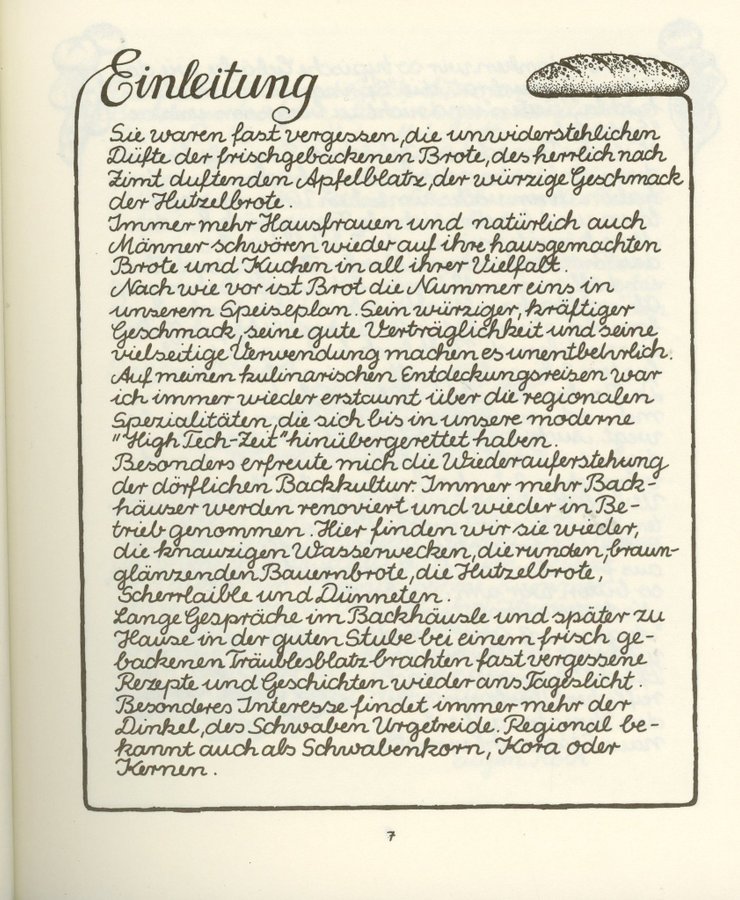 Einleitung
Sie waren fast vergessen, die unwiderstehlichen
Düfte der frischgebackenen Brote, des herrlich nach
Zimt duftenden Apfelblatz, der würzige Geschmack
der Hutzelbrote.
Immer mehr Hausfrauen und natürlich auch
Männer schwören wieder auf ihre hausgemachten
Brote und Kuchen in all ihrer Vielfalt.
Nach wie vor ist Brot die Nummer eins in
unserem Speiseplan. Sein würziger, kräftiger
Geschmack, seine gute Verträglichkeit und seine
vielseitige Verwendung machen es unentbehrlich.
Auf meinen kulinarischen Entdeckungsreisen war
ich immer wieder erstaunt über die regionalen
Spezialitäten, die sich bis in unsere moderne
"High Tech-Zeit" hinübergerettet haben.
Besonders erfreute mich die Wiederauferstehung
der dörflichen Backkultur. Immer mehr Back-
häuser werden renoviert und wieder in Be-
trieb genommen. Hier finden wir sie wieder,
die knauzigen Wasserwecken, die runden, braun-
glänzenden Bauernbrote, die Hutzelbrote,
Scherrlaible und Dünneten.
Lange Gespräche im Backhäusle und später zu
Hause in der guten Stube bei einem frisch ge-
backenen Träublesblatz brachten fast vergessene
Rezepte und Geschichten wieder ans Tageslicht.
Besonderes Interesse findet immer mehr der
Dinkel, des Schwaben Urgetreide. Regional be-
kannt auch als Schwabenkorn, Kora oder
Kernen.
7